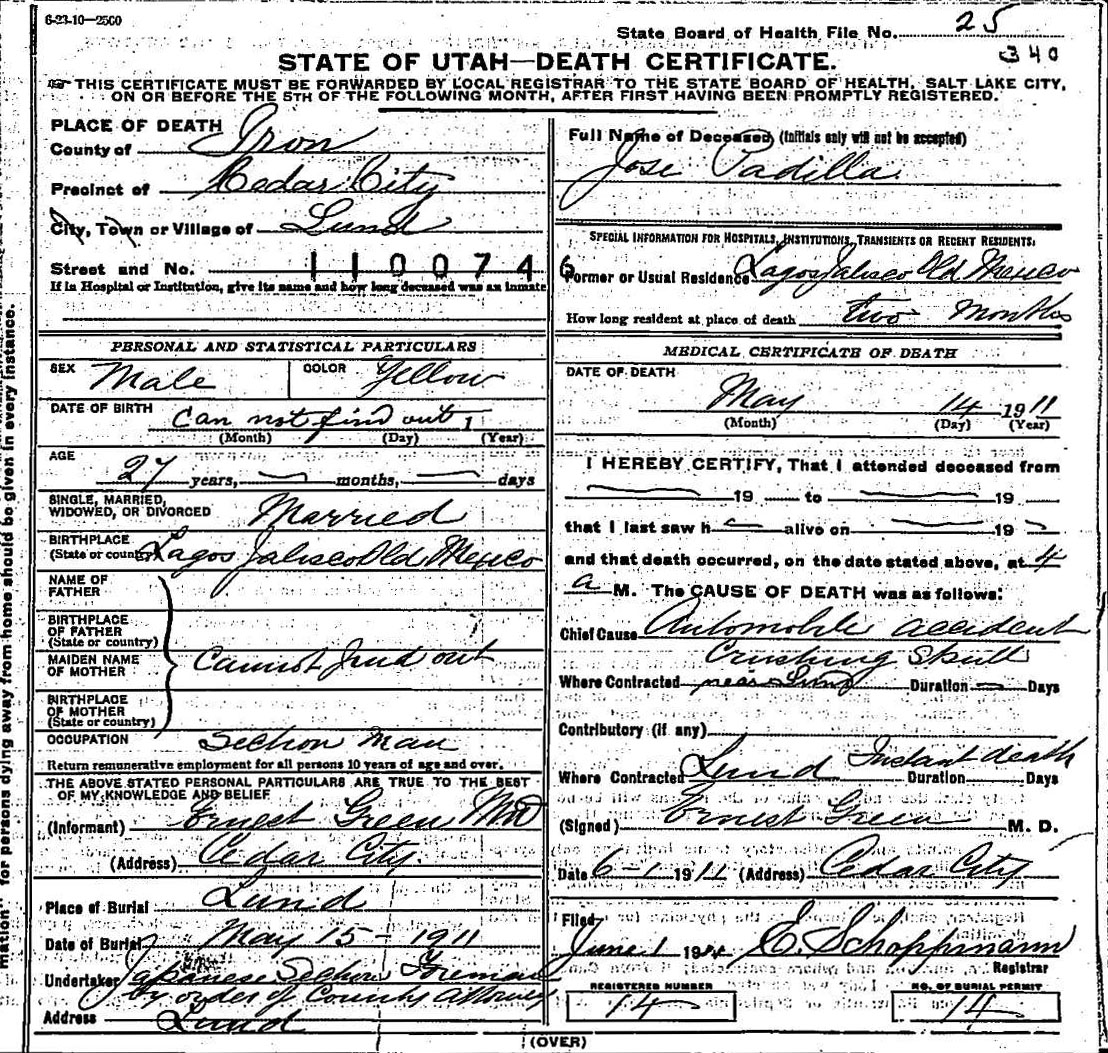 6-23-10—2500
State Board of Health File No. 25
340
STATE OF UTAH—DEATH CERTIFICATE.
THIS CERTIFICATE MUST BE FORWARDED BY LOCAL REGISTRAR TO THE STATE BOARD OF HEALTH, SALT LAKE CITY,
ON OR BEFORE THE 5TH OF THE FOLLOWING MONTH, AFTER FIRST HAVING BEEN PROMPTLY REGISTERED.
PLACE OF DEATH
County of Iron
Precinct of Cedar City
City, Town or Village of Lund
Street and No. 110074
If in Hospital or Institution, give its name and how long deceased was an inmate
PERSONAL AND STATISTICAL PARTICULARS
SEX Male COLOR Yellow
DATE OF BIRTH Can not find out 1
(Month) (Day) (Year)
AGE
27 years, months, days
SINGLE, MARRIED,
WIDOWED, OR DIVORCED Married
BIRTHPLACE
(State or country) Lagos Jalisco Old Mexico
NAME OF
FATHER
BIRTHPLACE
OF FATHER
(State or country)
MAIDEN NAME
OF MOTHER Cannot find out
BIRTHPLACE
OF MOTHER
(State or country)
OCCUPATION Section Man
Return remunerative employment for all persons 10 years of age and over.
THE ABOVE STATED PERSONAL PARTICULARS ARE TRUE TO THE BEST
OF MY KNOWLEDGE AND BELIEF
(Informant) Ernest Green MD
(Address) Cedar City
Place of Burial Lund
Date of Burial May 15- 1911
Undertaker Japanese Section Foreman
by order of County Attorney
Address Lund
Full Name of Deceased (Initials only will not be accepted)
Jose Padilla
SPECIAL INFORMATION FOR HOSPITALS, INSTITUTIONS, TRANSIENTS OR RECENT RESIDENTS:
6
Former or Usual Residence Lagos Jalisco Old Mexico
How long resident at place of death two Months
MEDICAL CERTIFICATE OF DEATH
DATE OF DEATH
May 14 1911
(Month) (Day) (Year)
I HEREBY CERTIFY, That I attended deceased from
19 to 19
that I last saw h alive on 19
and that death occurred, on the date stated above, at 4
a M. The CAUSE OF DEATH was as follows:
Chief Cause Automobile accident
Crushing Skull
Where Contracted near Lund Duration Days
Contributory (if any)
Where Contracted Lund Instant death Duration Days
(Signed) Ernest Green M. D.
Date 6-1 1911 (Address) Cedar City
Filed
June 1 1911 E. Schoppmann
Registrar
REGISTERED NUMBER
14
NO. OF BURIAL PERMIT
14
(OVER)
mation" for persons dying away from home should be given in every instance.